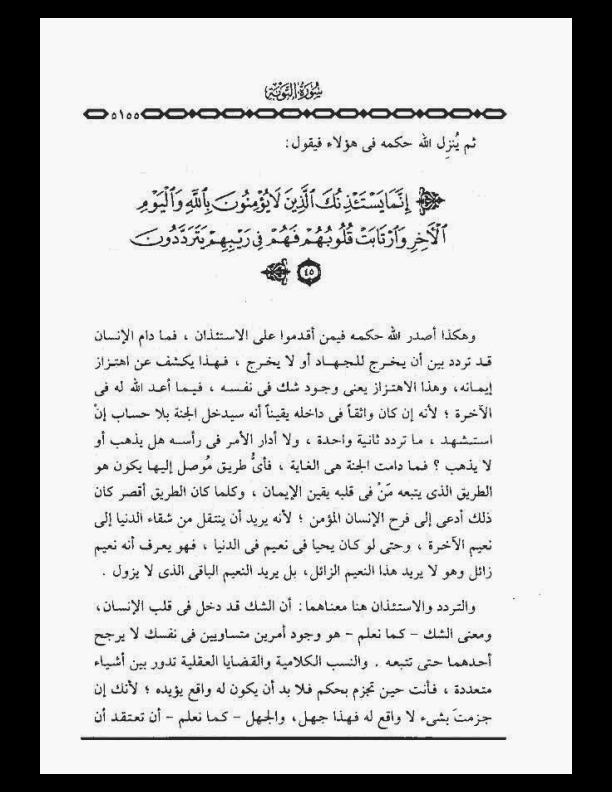 سُورَةُ التَّوْبَةِ
٥١٥٥
ثم يُنزِل الله حكمه فى هؤلاء فيقول :
إِنَّمَا يَسْتَـْٔذِنُكَ ٱلَّذِينَ لَا يُؤْمِنُونَ بِٱللَّهِ وَٱلْيَوْمِ
ٱلْـَٔاخِرِ وَٱرْتَابَتْ قُلُوبُهُمْ فَهُمْ فِى رَيْبِهِمْ يَتَرَدَّدُونَ
٤٥
وهكذا أصدر الله حكمه فيمن أقدموا على الاستئذان ، فما دام الإنسان
قد تردد بين أن يخرج للجهاد أو لا يخرج ، فهذا يكشف عن اهتزاز
إيمانه، وهذا الاهتزاز يعنى وجود شك فى نفسه ، فيما أعد الله له فى
الآخرة ؛ لأنه إن كان واثقاً فى داخله يقيناً أنه سيدخل الجنة بلا حساب إنْ
استشهد ، ما تردد ثانية واحدة ، ولا أدار الأمر فى رأسه هل يذهب أو
لا يذهب ؟ فما دامت الجنة هى الغاية ، فأىُّ طريق مُوصل إليها يكون هو
الطريق الذى يتبعه مَنْ فى قلبه يقين الإيمان ، وكلما كان الطريق أقصر كان
ذلك أدعى إلى فرح الإنسان المؤمن ؛ لأنه يريد أن ينتقل من شقاء الدنيا إلى
نعيم الآخرة ، وحتى لو كان يحيا فى نعيم فى الدنيا ، فهو يعرف أنه نعيم
زائل وهو لا يريد هذا النعيم الزائل، بل يريد النعيم الباقى الذى لا يزول .
والتردد والاستئذان هنا معناهما : أن الشك قد دخل فى قلب الإنسان،
ومعنى الشك – كما نعلم – هو وجود أمرين متساويين فى نفسك لا يرجح
أحدهما حتى تتبعه . والنسب الكلامية والقضايا العقلية تدور بين أشياء
متعددة ، فأنت حين تجزم بحكم فلا بد أن يكون له واقع يؤيده ؛ لأنك إن
جزمتَ بشىء لا واقع له فهذا جهل، والجهل – كما نعلم – أن تعتقد أن